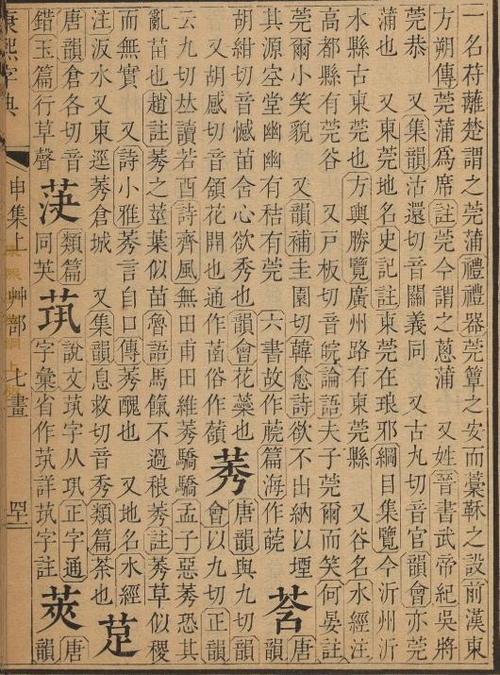 一名苻蘺楚謂之莞蒲禮禮器莞簟之安而藁鞂之設前漢東
方朔傳莞蒲爲席註莞今謂之蔥蒲 又姓晉書武帝紀吳將
莞恭 又集韻沽還切音關義同 又古九切音官韻會亦莞
蒲也 又東莞地名史記註東莞在琅邪綱目集覽今沂州沂
水縣古東莞也方輿勝覽廣州路有東莞縣 又谷名水經注
高都縣有莞谷 又戸板切音皖論語夫子莞爾而笑何晏註
莞爾小笑貌 又韻補圭園切韓愈詩欲不出納以堙
其源空堂幽幽有秸有莞 六書故作篇海作
莟
唐韻
胡紺切音憾苗舍心欲秀也韻會花蘂也
又胡感切音頷花開也通作菡俗作
莠
唐韻與九切韻
會以九切正韻
云九切𠀤讀若酉詩齊風無田甫田維莠驕驕孟子惡莠恐其
亂苗也趙註莠之莖葉似苗魯語馬餼不過稂莠註莠草似稷
而無實 又詩小雅莠言自口傳莠醜也 又地名水經
注汳水又東逕莠倉城 又集韻息救切音秀類篇茶也
莡
唐韻倉各切音
錯玉篇行草聲
類篇
同英
茿
說文茿字從巩正字通
字彙省作茿詳茿字註
莢
唐
韻
康熙字典
申集上 艸部 七畫